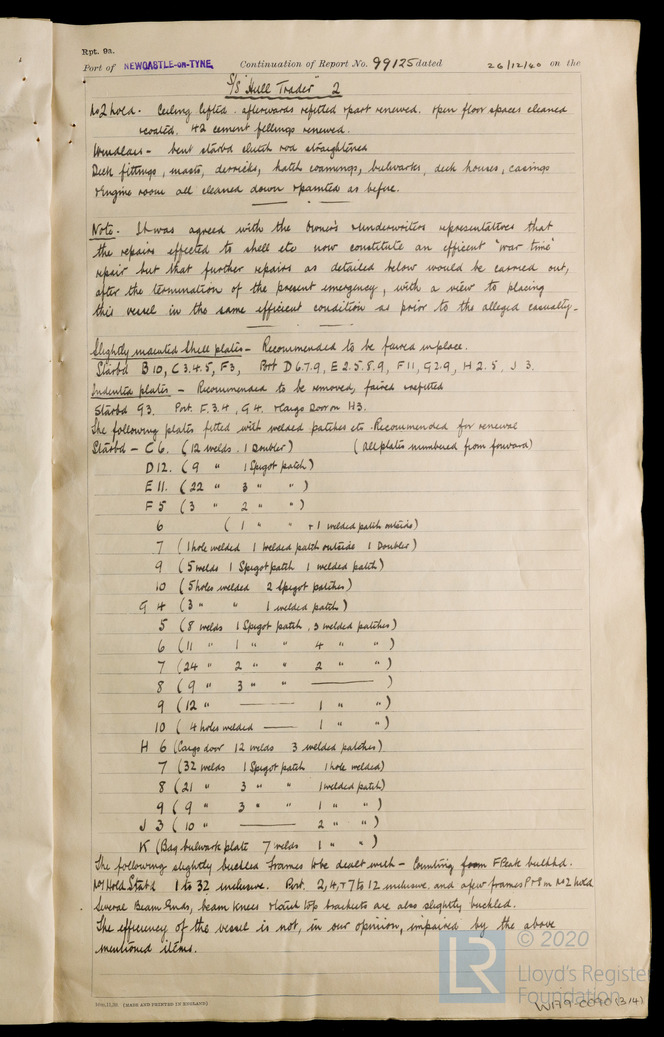 Rpt. 9a.
Port of NEWCASTLE-ON-TYNE. Continuation of Report No. 99125 dated 26/12/40 on the
S/S "Hull Trader" 2
No2 hold. Ceiling lifted. afterwards refitted & part renewed. open floor spaces cleaned
& coated. 42 cement fillings renewed.
Windlass - bent starbd clutch rod straightened
Deck fittings, masts, derricks, hatch coamings, bulwarks, deck houses, casings
& Engine room all cleaned down & painted as before.
Note. It was agreed with the Owner's & Underwriters representatives that
the repairs effected to shell etc now constitute an efficent "war time"
repair but that further repairs as detailed below would be carried out,
after the termination of the present emergency, with a view to placing
this vessel in the same efficient condition as prior to the alleged casualty.
Slightly indented Shell plates - Recommended to be faired in place.
Starbd B10, C3.4.5, F3, Port D6.7.9, E2.5.8.9, F11, G2.9, H2.5, J3.
Indented plates - Recommended to be removed, faired & refitted
Starbd G3. Port. F.3.4, G4. & Cargo Door on H3.
The following plates fitted with welded patches etc. Recommended for renewal
Starbd - C6. (12 welds. 1 Doubler) (All plates numbered from forward)
D12. (9 " 1 Spigot patch)
E11. (22 " 3 " ")
F5 (3 " 2 " ")
6 (1 " " + 1 welded patch outside)
7 (1 hole welded 1 welded patch outside 1 Doubler)
9 (5 welds 1 Spigot patch 1 welded patch)
10 (5 holes welded 2 Spigot patches)
G 4 (3 " " 1 welded patch)
5 (8 welds 1 Spigot patch. 3 welded patches)
6 (11 " 1 " " 4 " ")
7 (24 " 2 " " 2 " ")
8 (9 " 3 " " ——— )
9 (12 " ——— 1 " ")
10 (4 holes welded —— 1 " ")
H 6 (Cargo door 12 welds 3 welded patches)
7 (32 welds 1 Spigot patch 1 hole welded)
8 (21 " 3 " " 1 welded patch)
9 (9 " 3 " " 1 " ")
J 3 (10 " ——— 2 " ")
K (Bag bulwark plate 7 welds 1 " ")
The following slightly buckled Frames to be dealt with - Counting from F Peak bulkhd.
No1 Hold Starbd 1 to 32 inclusive. Port. 2, 4, + 7 to 12 inclusive. and a few frames P & S in No2 hold
Several Beam Ends, beam knees & top brackets are also slightly buckled.
The efficiency of the vessel is not, in our opinion, impaired by the above
mentioned items.
(MADE AND PRINTED IN ENGLAND)
LR
© 2020
Lloyd's Register
Foundation
W179-0090 (3/4)